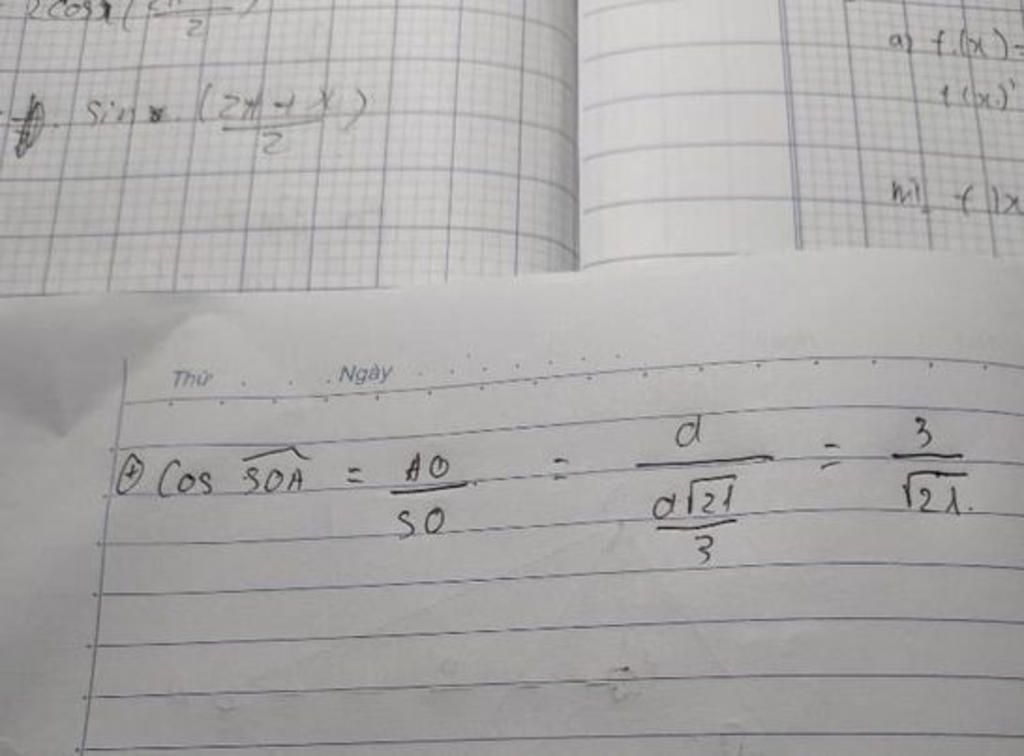 2cosx(
2
sin (2π+x)/2
a) f(x) =
f(x)'
m) f(x
Thứ . . . . Ngày . . . . . . . .
⊕ Cos SOA = AO/SO = a/(a√21/3) = 3/√21.